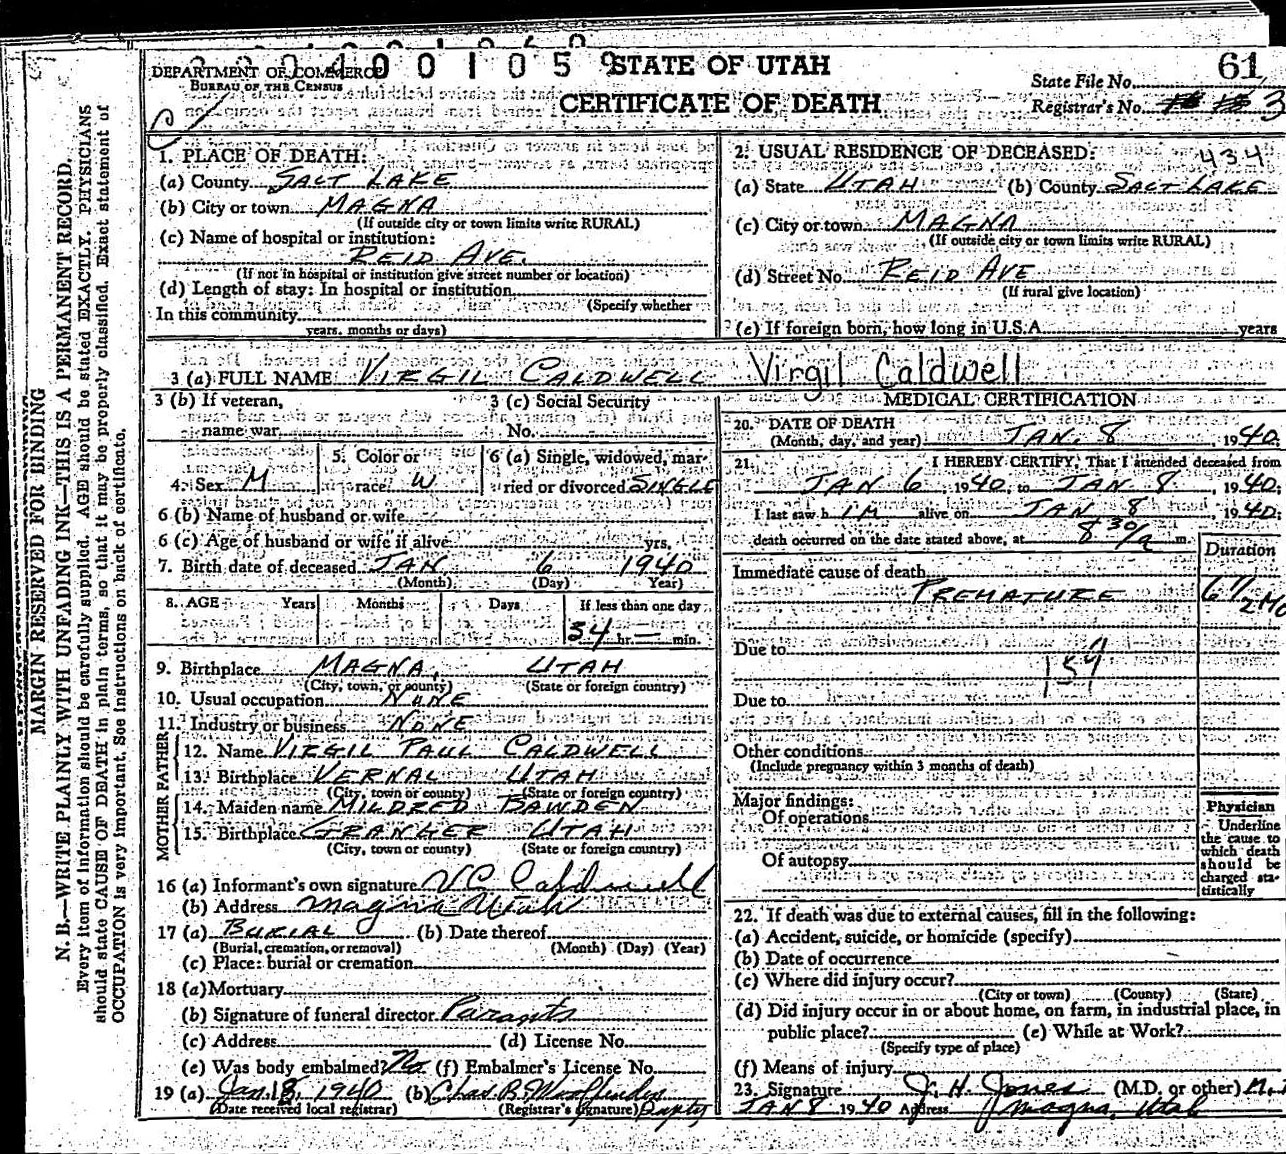 DEPARTMENT OF COMMERCE
BUREAU OF THE CENSUS
STATE OF UTAH
CERTIFICATE OF DEATH
61
State File No.
Registrar's No. 3
434
MARGIN RESERVED FOR BINDING
N. B.—WRITE PLAINLY WITH UNFADING INK—THIS IS A PERMANENT RECORD.
Every item of information should be carefully supplied. AGE should be stated EXACTLY. PHYSICIANS
should state CAUSE OF DEATH in plain terms, so that it may be properly classified. Exact statement of
OCCUPATION is very important. See instructions on back of certificate.
1. PLACE OF DEATH:
(a) County SALT LAKE
(b) City or town MAGNA
(If outside city or town limits write RURAL)
(c) Name of hospital or institution:
REID AVE.
(If not in hospital or institution give street number or location)
(d) Length of stay: In hospital or institution
(Specify whether
In this community
years, months or days)
2. USUAL RESIDENCE OF DECEASED:
(a) State UTAH (b) County SALT LAKE
(c) City or town MAGNA
(If outside city or town limits write RURAL)
(d) Street No. REID AVE
(If rural give location)
(e) If foreign born, how long in U.S.A. years
3 (a) FULL NAME VIRGIL CALDWELL Virgil Caldwell
3 (b) If veteran,
name war
3 (c) Social Security
No.
4. Sex M
5. Color or
race W
6 (a) Single, widowed, mar-
ried or divorced SINGLE
6 (b) Name of husband or wife
6 (c) Age of husband or wife if alive yrs.
7. Birth date of deceased JAN 6 1940
(Month) (Day) Year)
8. AGE Years Months Days If less than one day
34 hr. — min.
9. Birthplace MAGNA, UTAH
(City, town, or county) (State or foreign country)
10. Usual occupation NONE
11. Industry or business NONE
FATHER
12. Name VIRGIL PAUL CALDWELL
13. Birthplace VERNAL UTAH
(City, town or county) (State or foreign country)
MOTHER
14. Maiden name MILDRED BAWDEN
15. Birthplace GRANGER UTAH
(City, town or county) (State or foreign country)
16 (a) Informant's own signature V C Caldwell
(b) Address Magna Utah
17 (a) BURIAL (b) Date thereof
(Burial, cremation, or removal) (Month) (Day) (Year)
(c) Place: burial or cremation
18 (a) Mortuary
(b) Signature of funeral director Parents
(c) Address (d) License No.
(e) Was body embalmed? No (f) Embalmer's License No.
19 (a) Jan. 8, 1940 (b) Chas B.
(Date received local registrar) (Registrar's signature) Deputy
MEDICAL CERTIFICATION
20. DATE OF DEATH
(Month, day, and year) JAN. 8, 1940.
21. I HEREBY CERTIFY, That I attended deceased from
JAN 6, 1940, to JAN 8, 1940;
I last saw h IM alive on JAN 8, 1940;
death occurred on the date stated above, at 8 30/a m.
Duration
Immediate cause of death
PREMATURE 6 1/2 MO
Due to
159
Due to
Other conditions
(Include pregnancy within 3 months of death)
Major findings:
Of operations
Of autopsy
Physician
Underline
the cause to
which death
should be
charged sta-
tistically
22. If death was due to external causes, fill in the following:
(a) Accident, suicide, or homicide (specify)
(b) Date of occurrence
(c) Where did injury occur?
(City or town) (County) (State)
(d) Did injury occur in or about home, on farm, in industrial place, in
public place? (e) While at Work?
(Specify type of place)
(f) Means of injury
23. Signature J. H. Jones (M.D. or other) M.
JAN 8 1940 Address Magna, Utah